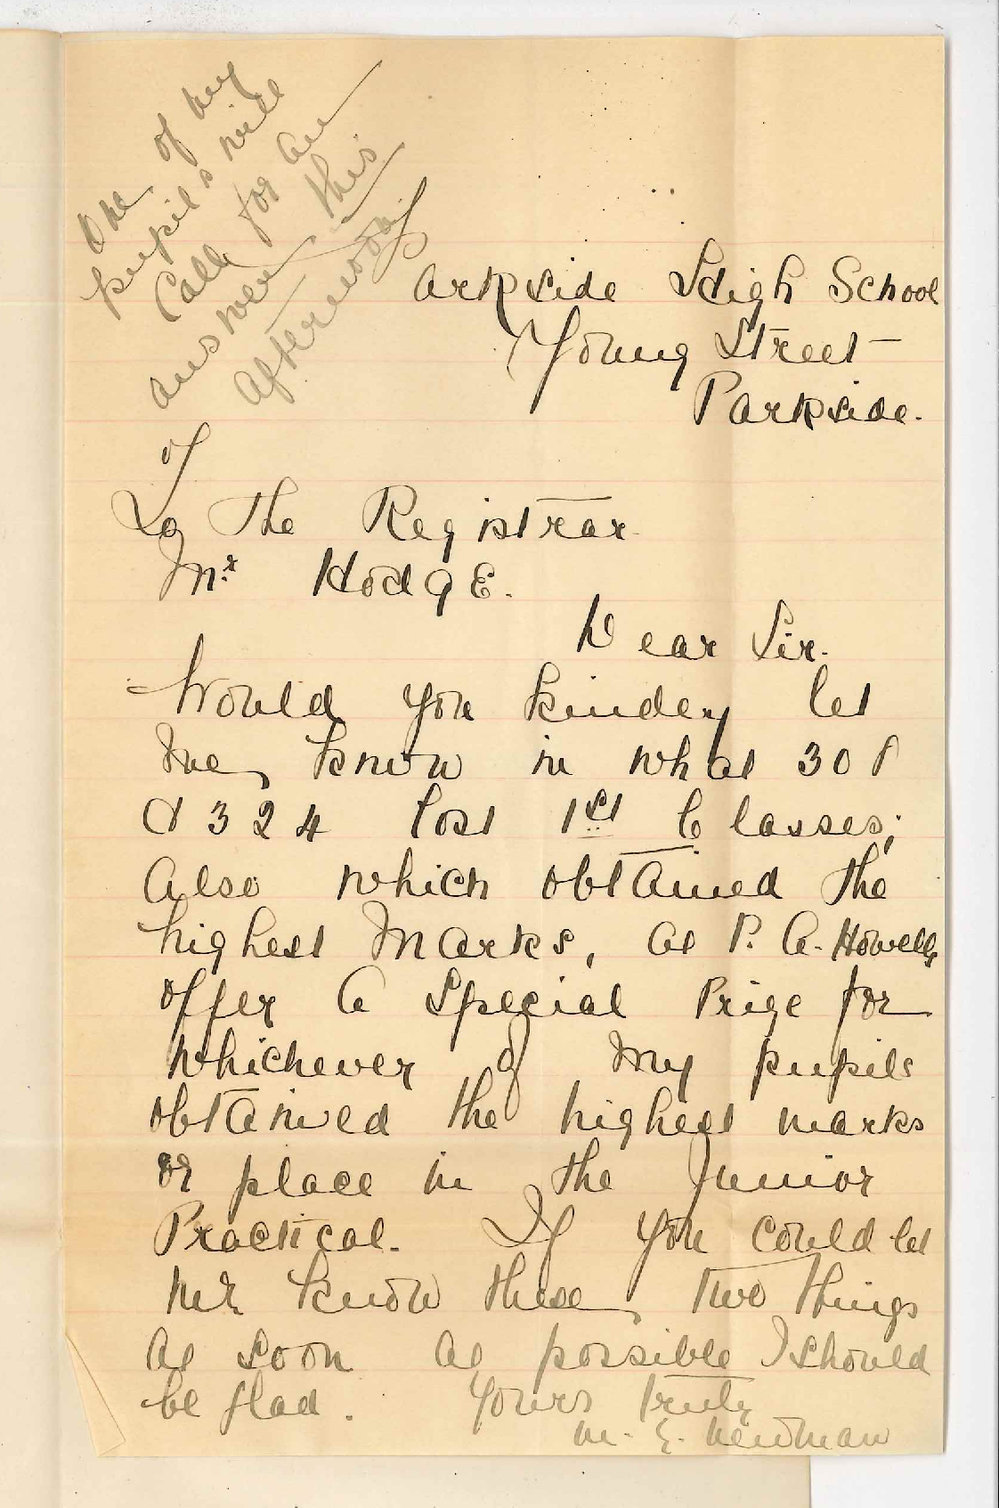 One of my
pupils will
Call for an
answer this
afternoon
Parkside High School
Young Street
Parkside.
To The Registrar.
Mr. Hodge.
Dear Sir.
Would you kindly let
me know in what 308
& 324 lost 1st Classes;
Also which obtained the
highest Marks, as P. A. Howells
offer a Special Prize for
whichever of my pupils
obtained the highest marks
or place in the Junior
Practical. If you could let
me know these two things
as soon as possible I should
be glad. Yours truly
M. E. Newman